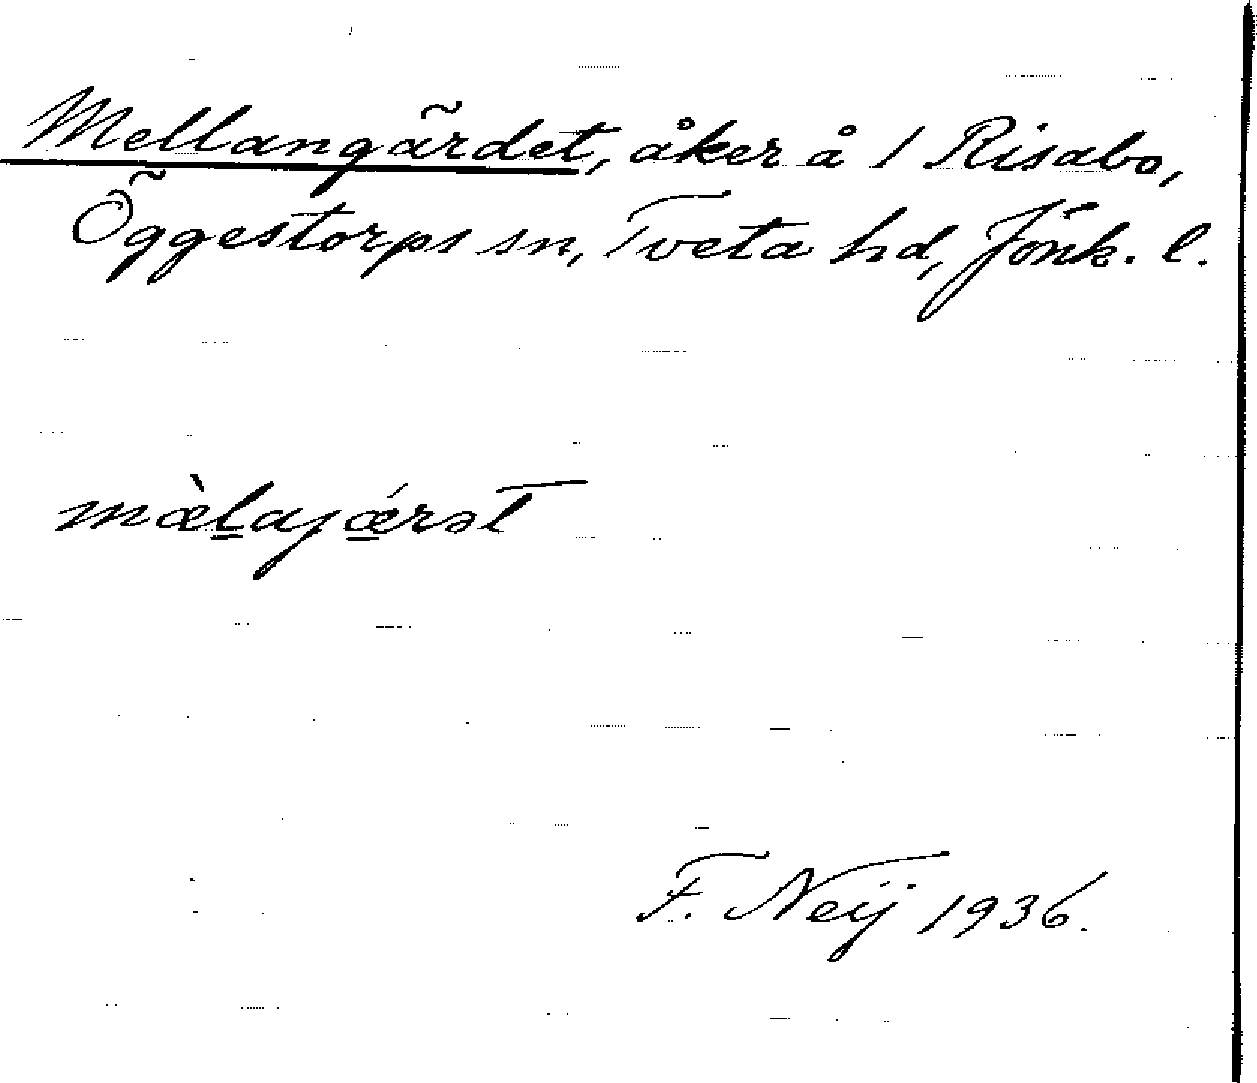 Mellangärdet, åker å 1 Risabo,
Öggestorps sn, Tveta hd, Jönk. l.
mæ̀l̲ajǽ̲rət
F. Neij 1936.